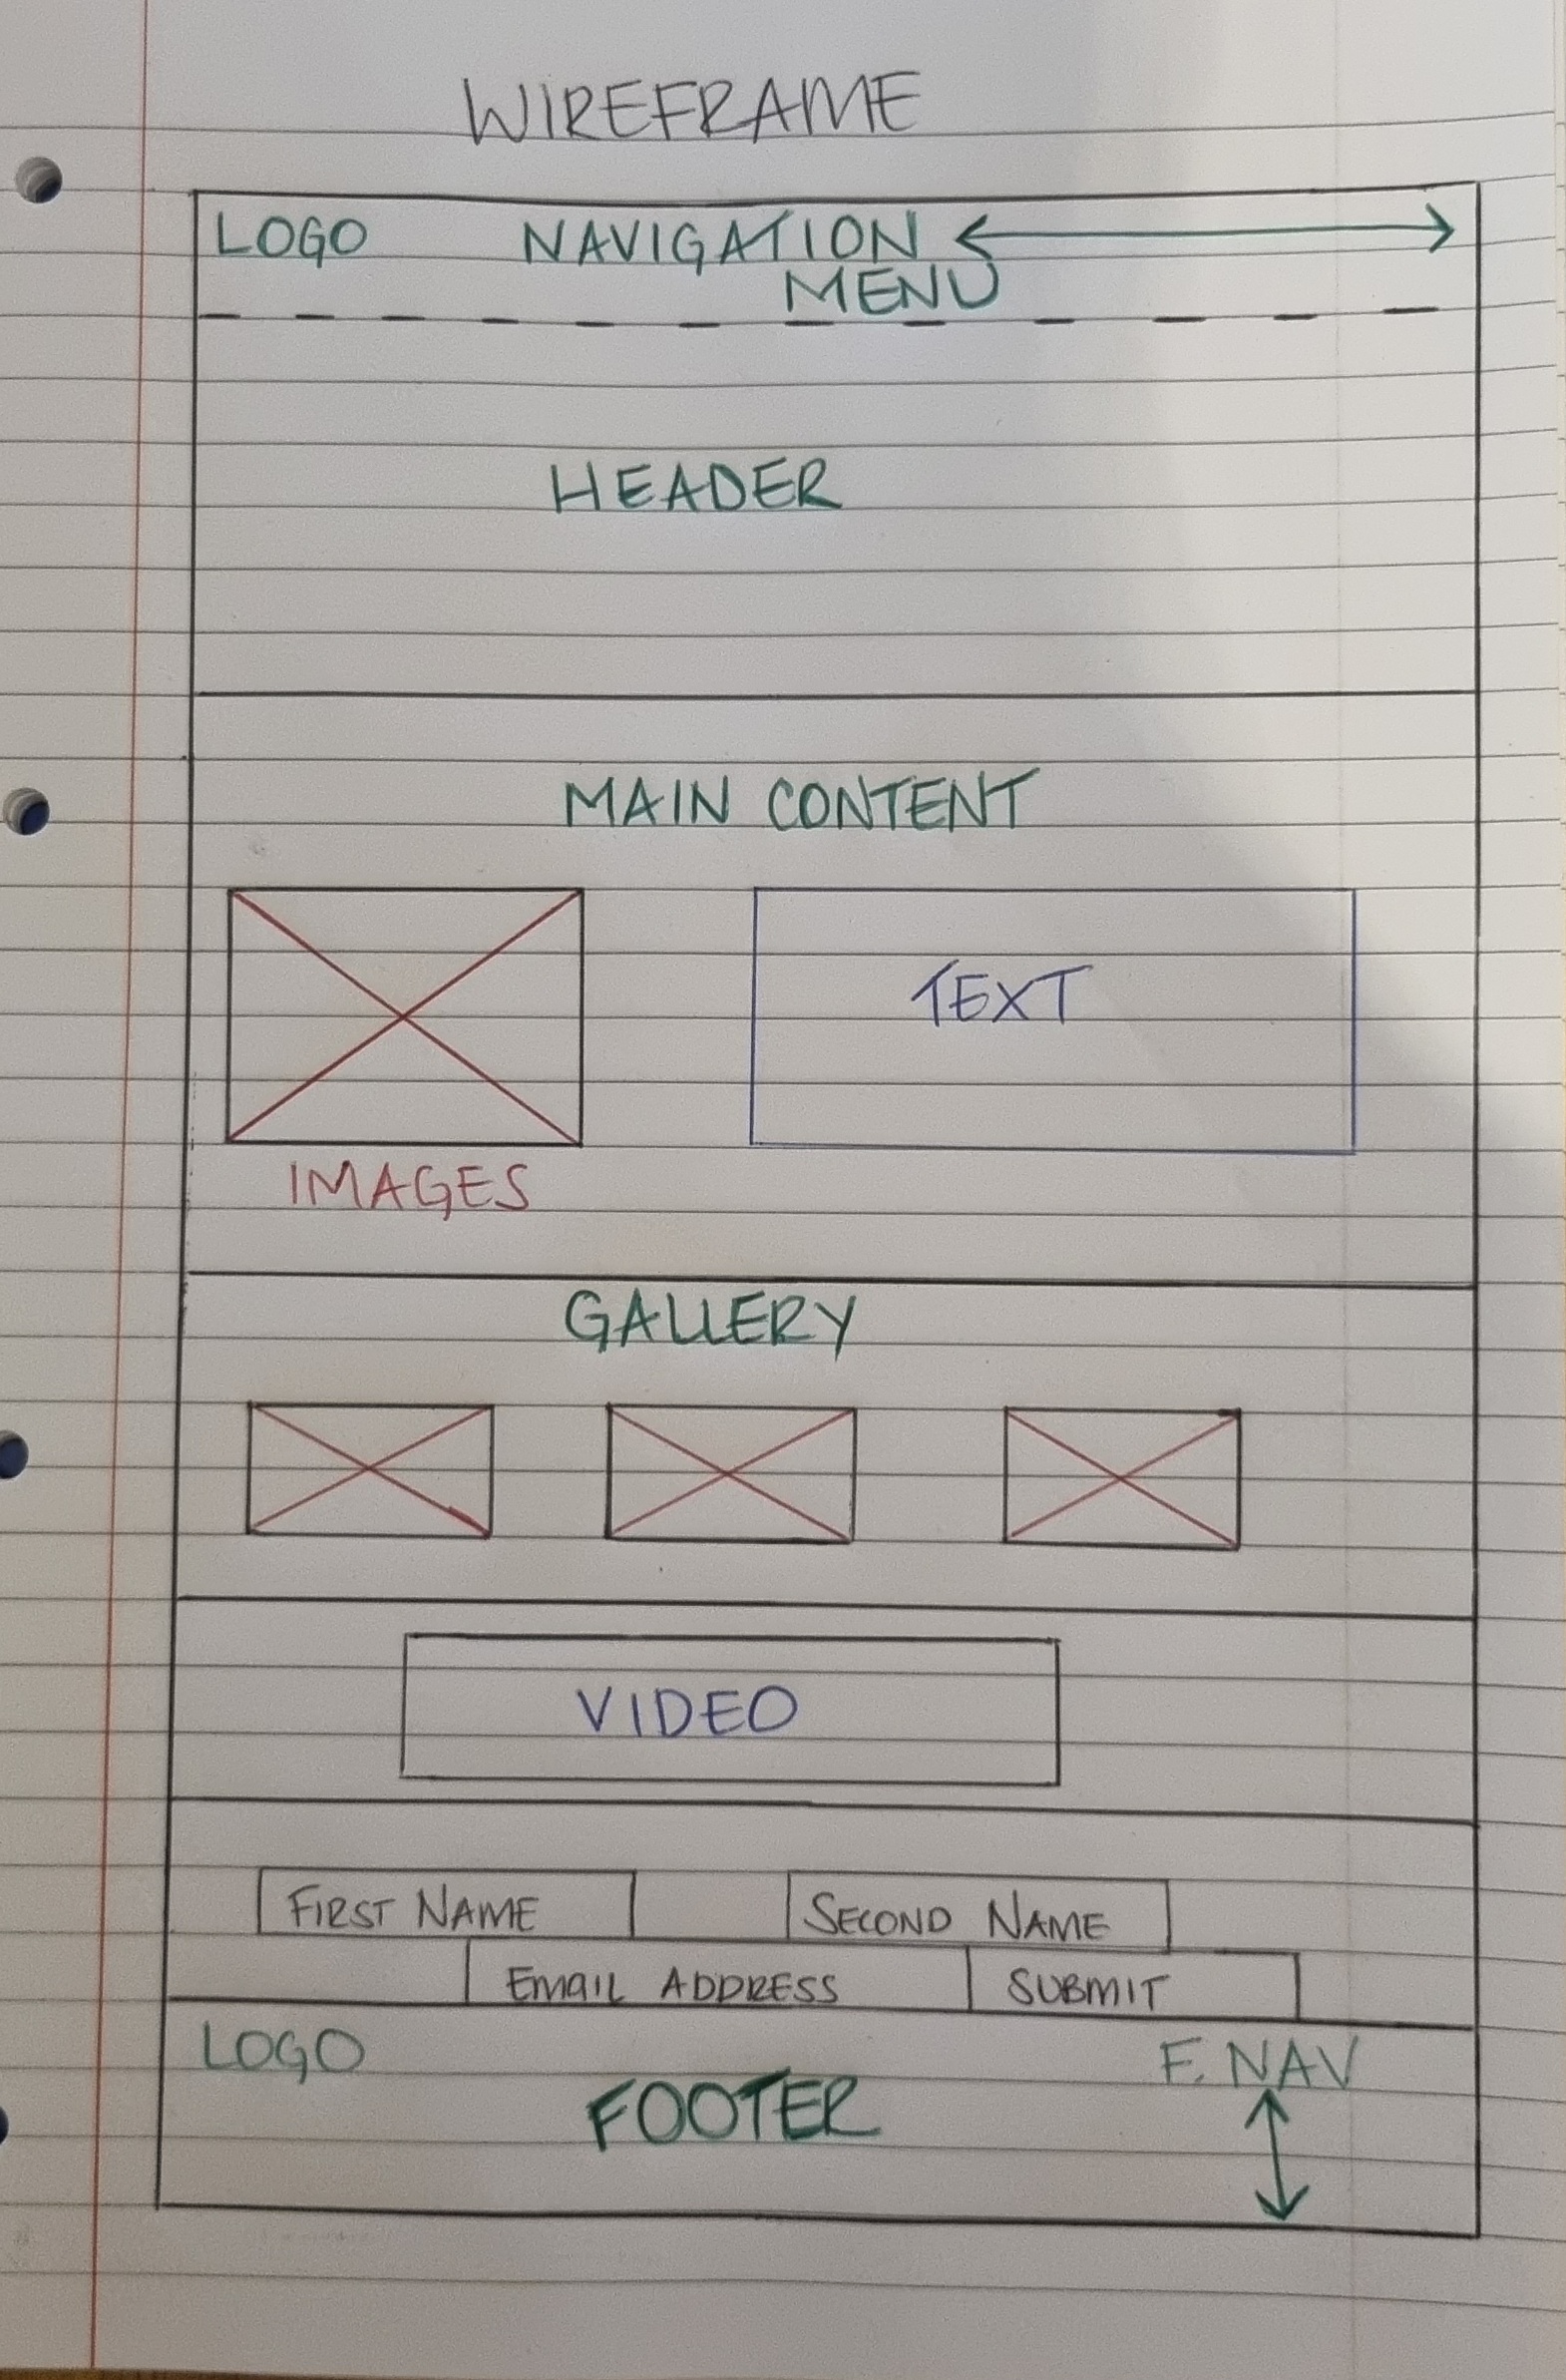 WIREFRAME
LOGO NAVIGATION
MENU
HEADER
MAIN CONTENT
TEXT
IMAGES
GALLERY
VIDEO
FIRST NAME SECOND NAME
EMAIL ADDRESS SUBMIT
LOGO F. NAV
FOOTER